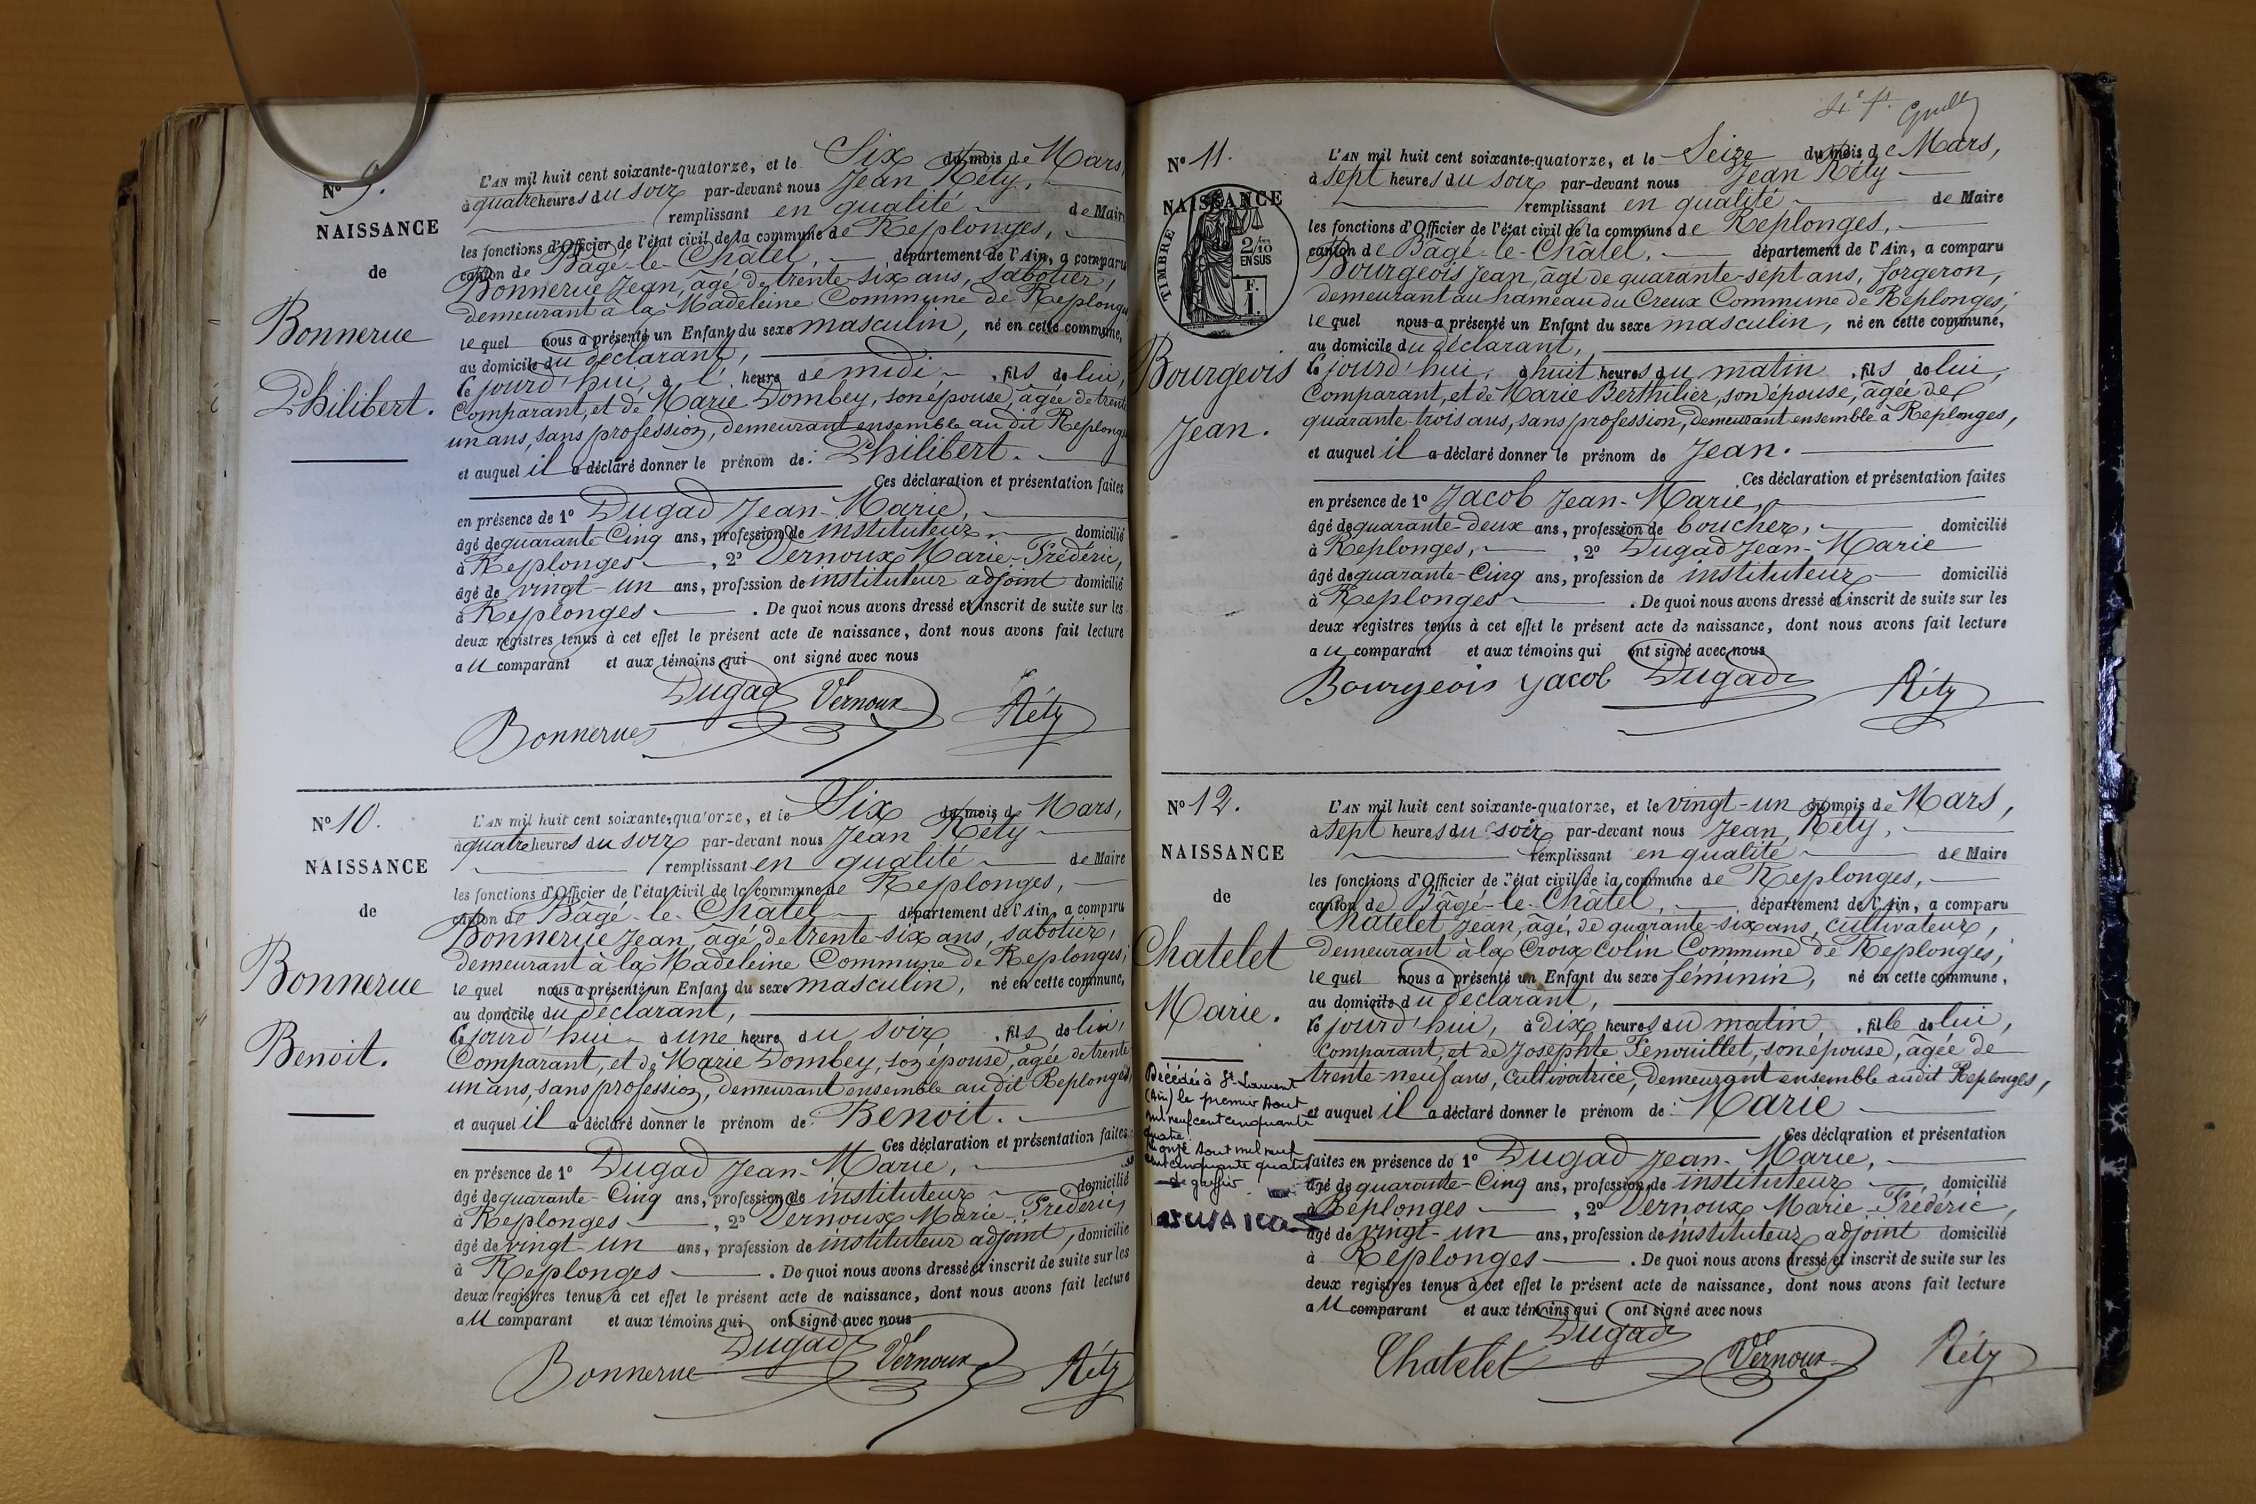 N° 9.
NAISSANCE
de
Bonnerue
Philibert.
L'AN mil huit cent soixante-quatorze, et le Six du mois de Mars,
à quatre heures du soir par-devant nous Jean Réty,
remplissant en qualité de Maire
les fonctions d'Officier de l'état civil de la commune de Replonges,
canton de Bâgé-le-Châtel, département de l'Ain, a comparu
Bonnerue Jean, âgé de trente-six ans, sabotier,
demeurant à la Madeleine Commune de Replonges
lequel nous a présenté un Enfant du sexe masculin, né en cette commune,
au domicile du déclarant,
ce jourd'hui, à l' heure de midi, fils de lui,
Comparant, et de Marie Dombey, son épouse, âgée de trente
un ans, sans profession, demeurant ensemble au dit Replonges
et auquel il a déclaré donner le prénom de: Philibert.
Ces déclaration et présentation faites
en présence de 1° Dugad Jean-Marie,
âgé de quarante-Cinq ans, profession de instituteur domicilié
à Replonges, 2° Vernoux Marie-Frédéric,
âgé de vingt-un ans, profession de instituteur adjoint domicilié
à Replonges. De quoi nous avons dressé et inscrit de suite sur les
deux registres tenus à cet effet le présent acte de naissance, dont nous avons fait lecture
au comparant et aux témoins qui ont signé avec nous
Dugad Vernoux Réty
Bonnerue
N° 10.
NAISSANCE
de
Bonnerue
Benoit.
L'AN mil huit cent soixante-quatorze, et le Six du mois de Mars,
à quatre heures du soir par-devant nous Jean Réty
remplissant en qualité de Maire
les fonctions d'Officier de l'état civil de la commune de Replonges,
canton de Bâgé-le-Châtel département de l'Ain, a comparu
Bonnerue Jean, âgé de trente-six ans, sabotier,
demeurant à la Madeleine Commune de Replonges,
lequel nous a présenté un Enfant du sexe masculin, né en cette commune,
au domicile du déclarant,
ce jourd'hui à une heure du soir, fils de lui,
Comparant, et de Marie Dombey, son épouse, âgée de trente
un ans, sans profession, demeurant ensemble au dit Replonges,
et auquel il a déclaré donner le prénom de: Benoit.
Ces déclaration et présentation faites
en présence de 1° Dugad Jean-Marie,
âgé de quarante-Cinq ans, profession de instituteur domicilié
à Replonges, 2° Vernoux Marie-Frédéric,
âgé de vingt-un ans, profession de instituteur adjoint, domicilié
à Replonges. De quoi nous avons dressé et inscrit de suite sur les
deux registres tenus à cet effet le présent acte de naissance, dont nous avons fait lecture
au comparant et aux témoins qui ont signé avec nous
Bonnerue Dugad Vernoux Réty
N° 11.
NAISSANCE
TIMBRE
2/10
EN SUS
F.
1.
Bourgeois
Jean.
L'AN mil huit cent soixante-quatorze, et le Seize du mois de Mars,
à sept heures du soir par-devant nous Jean Réty
remplissant en qualité de Maire
les fonctions d'Officier de l'état civil de la commune de Replonges,
canton de Bâgé-le-Châtel, département de l'Ain, a comparu
Bourgeois Jean, âgé de quarante-sept ans, forgeron,
demeurant au hameau du Creux Commune de Replonges;
lequel nous a présenté un Enfant du sexe masculin, né en cette commune,
au domicile du déclarant,
ce jourd'hui, à huit heures du matin, fils de lui,
Comparant, et de Marie Berthilier, son épouse, âgée de
quarante-trois ans, sans profession, demeurant ensemble à Replonges,
et auquel il a déclaré donner le prénom de Jean.
Ces déclaration et présentation faites
en présence de 1° Jacob Jean-Marie,
âgé de quarante-deux ans, profession de boucher, domicilié
à Replonges, 2° Dugad Jean-Marie
âgé de quarante-Cinq ans, profession de instituteur domicilié
à Replonges. De quoi nous avons dressé et inscrit de suite sur les
deux registres tenus à cet effet le présent acte de naissance, dont nous avons fait lecture
au comparant et aux témoins qui ont signé avec nous
Bourgeois Jacob Dugad Réty
N° 12.
NAISSANCE
de
Chatelet
Marie.
Décédée à St-Laurent
(Ain) le premier Aout
mil neuf cent cinquante
quatre.
onze Aout mil neuf
cent cinquante quatre
L'AN mil huit cent soixante-quatorze, et le vingt-un du mois de Mars,
à sept heures du soir par-devant nous Jean Réty,
remplissant en qualité de Maire
les fonctions d'Officier de l'état civil de la commune de Replonges,
canton de Bâgé-le-Châtel, département de l'Ain, a comparu
Chatelet Jean, âgé, de quarante-six ans, cultivateur,
demeurant à la Croix Colin Commune de Replonges;
lequel nous a présenté un Enfant du sexe féminin, né en cette commune,
au domicile du déclarant,
ce jourd'hui, à dix heures du matin, fille de lui,
Comparant, et de Josephte Fenouillet, son épouse, âgée de
trente-neuf ans, cultivatrice, demeurant ensemble audit Replonges,
et auquel il a déclaré donner le prénom de: Marie
Ces déclaration et présentation
faites en présence de 1° Dugad Jean-Marie,
âgé de quarante-Cinq ans, profession de instituteur, domicilié
à Replonges, 2° Vernoux Marie-Frédéric,
âgé de vingt-un ans, profession de instituteur adjoint domicilié
à Replonges. De quoi nous avons dressé et inscrit de suite sur les
deux registres tenus à cet effet le présent acte de naissance, dont nous avons fait lecture
au comparant et aux témoins qui ont signé avec nous
Chatelet Dugad Vernoux Réty